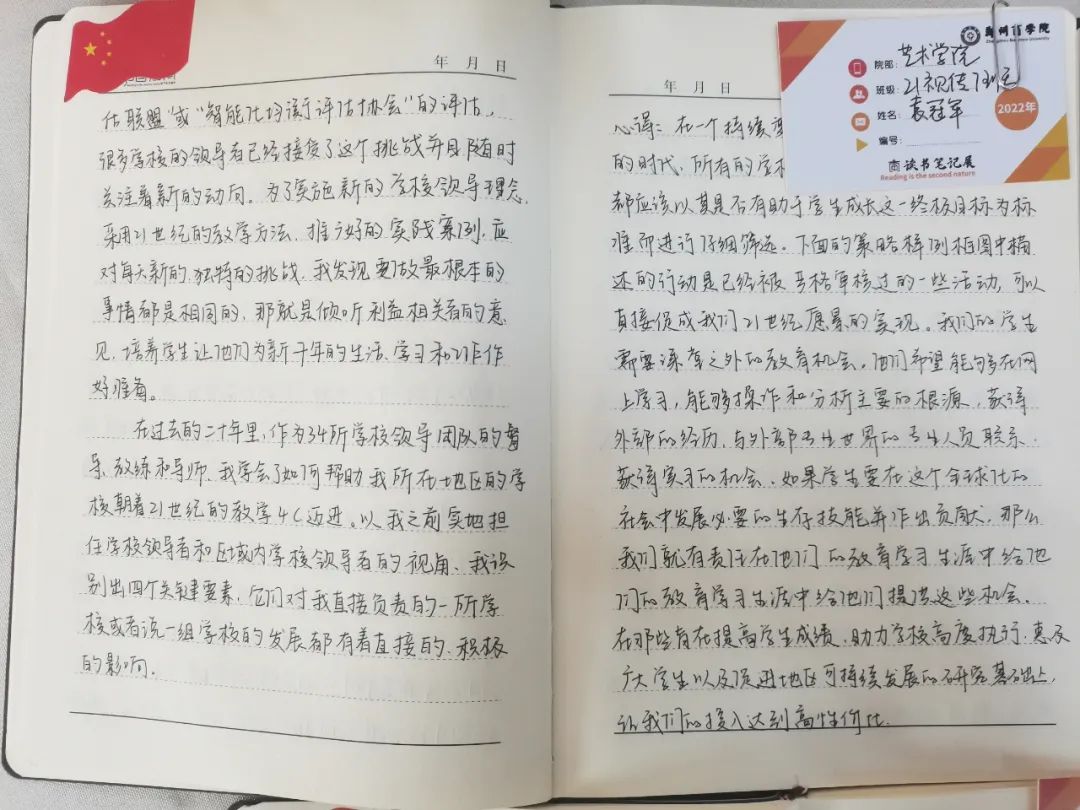 年 月 日
估联盟"或"智能化均衡评估协会"的评估，
很多学校的领导者已经接受了这个挑战并且随时
关注着新的动向。为了实施新的学校领导理念，
采用21世纪的教学方法、推广好的实践案例，应
对每天新的、独特的挑战，我发现要做最根本的
事情都是相同的，那就是倾听利益相关者的意
见，培养学生让他们为新千年的生活、学习和工作作
好准备。
在过去的二十年里，作为34所学校领导团队的督
导、教练和导师，我学会了如何帮助我所在地区的学
校朝着21世纪的教学4C迈进。以我之前实地担
任学校领导者和区域内学校领导者的视角，我识
别出四个关键要素，它们对我直接负责的一所学
校或者说一组学校的发展都有着直接的、积极
的影响。
年 月 日
心得：在一个持续
的时代，所有的学校
都应该以其是否有助于学生成长这一终极目标为标
准而进行仔细筛选。下面的策略样例框图中描
述的行动是已经被严格审核过的一些活动，可以
直接促成我们21世纪愿景的实现。我们的学生
需要课堂之外的教育机会。他们希望能够在网
上学习，能够操作和分析主要的根源，获得
外部的经历，与外部专业世界的专业人员联系，
获得实习的机会。如果学生要在这个全球化的
社会中发展必要的生存技能并作出贡献，那么
我们就有责任在他们的教育学习生涯中给他
们的教育学习生涯中给他们提供这些机会。
在那些旨在提高学生成绩、助力学校高度执行、惠及
广大学生以及促进地区可持续发展的研究基础上，
让我们的投入达到高性价比。
郑州商学院
Zhengzhou Business University
院部：艺术学院
班级：21视传7班
姓名：袁冠军
编号：
2022年
读书笔记展
Reading is the second nature